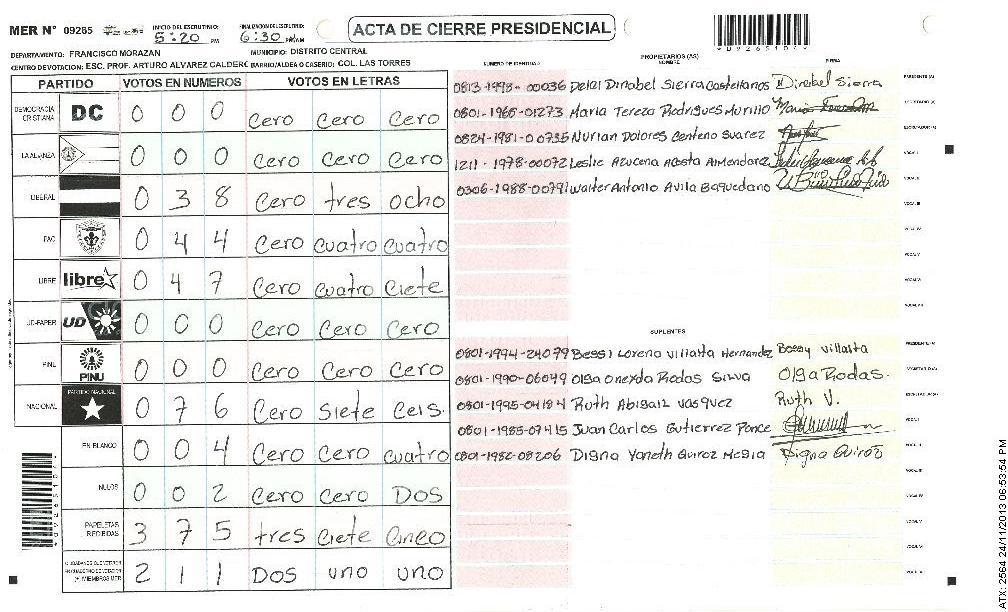 MER N° 09265 INICIO DEL ESCRUTINIO: 5:20 PM FINALIZACION DEL ESCRUTINIO: 6:30 PM ACTA DE CIERRE PRESIDENCIAL
DEPARTAMENTO: FRANCISCO MORAZAN MUNICIPIO: DISTRITO CENTRAL
CENTRO DE VOTACION: ESC. PROF. ARTURO ALVAREZ CALDERC BARRIO/ALDEA O CASERIO: COL. LAS TORRES
PARTIDO VOTOS EN NUMEROS VOTOS EN LETRAS NUMERO DE IDENTIDAD PROPIETARIOS (AS) NOMBRE FIRMA
DEMOCRACIA CRISTIANA DC 0 0 0 Cero Cero Cero
LA ALIANZA 0 0 0 Cero Cero Cero
LIBERAL 0 3 8 Cero tres ocho
PAC 0 4 4 Cero cuatro cuatro
LIBRE libre 0 4 7 Cero cuatro Ciete
UD-FAPER UD 0 0 0 Cero Cero Cero
PINU PINU 0 0 0 Cero Cero Cero
NACIONAL PARTIDO NACIONAL 0 7 6 Cero Siete Ceis.
EN BLANCO 0 0 4 Cero Cero cuatro
NULOS 0 0 2 Cero Cero DOS
PAPELETAS RECIBIDAS 3 7 5 tres Ciete Cinco
2 1 1 DOS uno uno
0813-1998-00036 Delci Dinabel Sierra Castellanos Dinabel Sierra PRESIDENTE (A)
0801-1965-01273 Maria Tereza Rodrigues Murillo SECRETARIO (A)
0824-1981-00735 Nurian Dolores Centeno Suarez ESCRUTADOR (A)
1211-1978-00072 Leslie Azucena Acosta Armendarez VOCAL I
0306-1988-00791 Walter Antonio Avila Baquedano VOCAL II
VOCAL III
VOCAL IV
VOCAL V
VOCAL VI
VOCAL VII
SUPLENTES
0801-1994-24079 Bessi Lorena Villatta Hernandez Bessy Villatta PRESIDENTE (A)
0801-1990-06049 Olga Oneyda Rodas Silva Olga Rodas. SECRETARIO (A)
0801-1995-04184 Ruth Abigail Vasquez Ruth V. ESCRUTADOR (A)
0801-1985-07415 Juan Carlos Gutierrez Ponce VOCAL I
0801-1982-08206 Digna Yaneth Quiroz Mejia Digna Quiroz VOCAL II
VOCAL III
VOCAL IV
VOCAL V
VOCAL VI
VOCAL VII
ATX: 2564 24/11/2013 06:53:54 PM